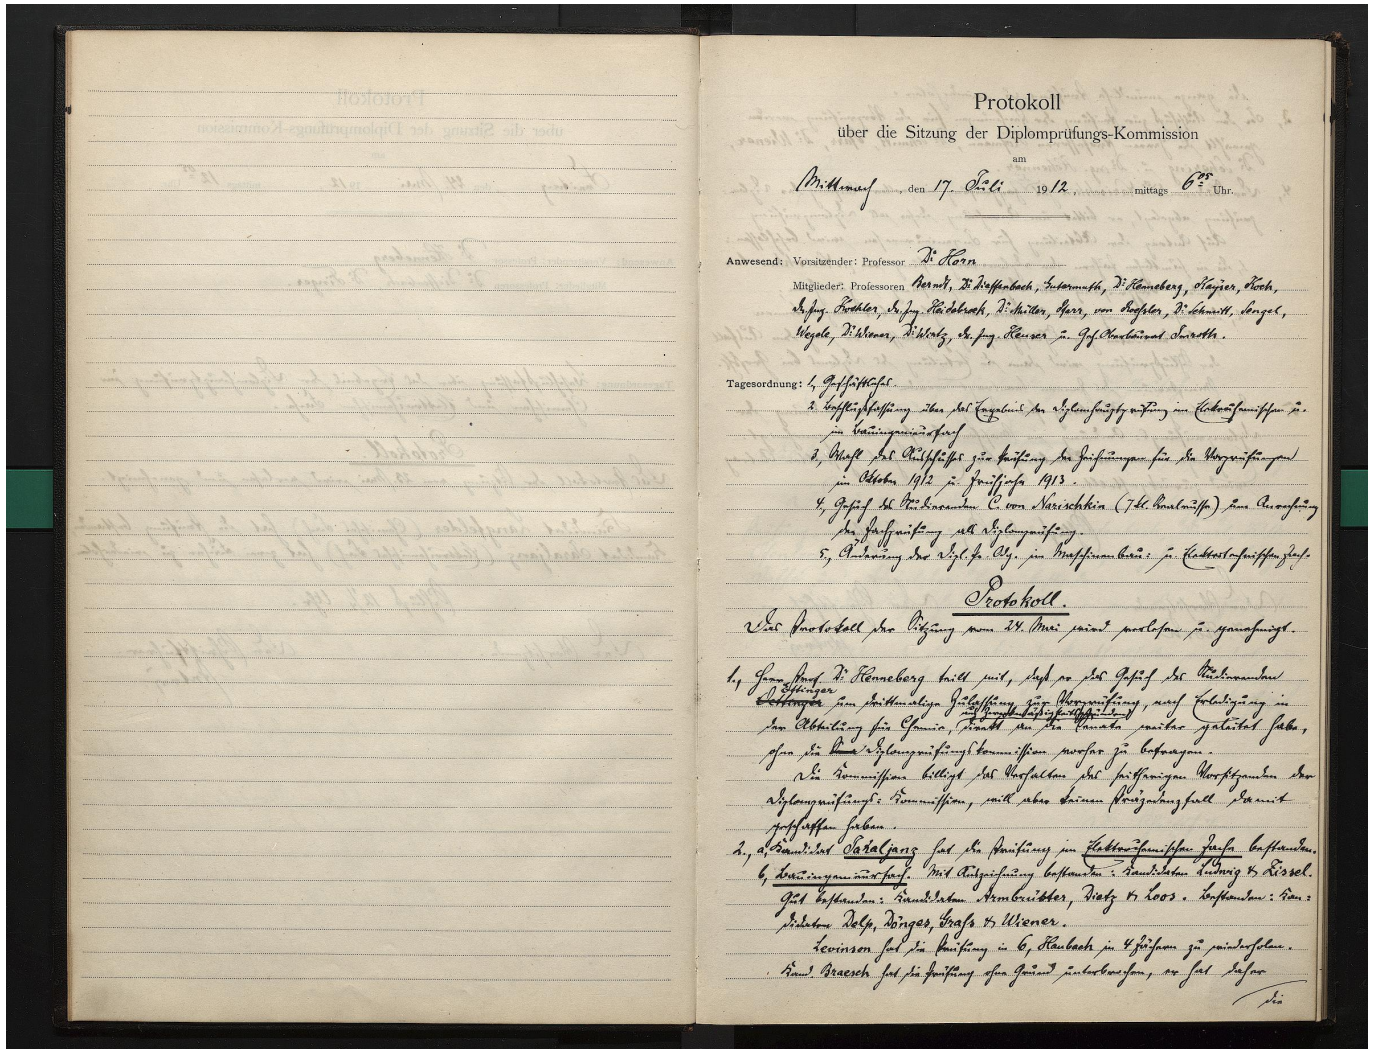 Protokoll
über die Sitzung der Diplomprüfungs-Kommission
am
Mittwoch, den 17. Juli 1912, mittags 6⁰⁵ Uhr.
Anwesend: Vorsitzender: Professor Dr Horn
Mitglieder: Professoren Berndt, Dr Dieffenbach, Gutermuth, Dr Henneberg, Kayser, Koch,
Dr. Ing. Koehler, Dr. Ing. Heidebroek, Dr Müller, Pfarr, von Roeßler, Dr Schmitt, Sengel,
Wegele, Dr Wiener, Dr Wirtz, Dr. Ing. Heuser u. Geh. Oberbaurat
Tagesordnung: 1, Geschäftliches.
2 Beschlußfassung über das Ergebnis der Diplomhauptprüfung im Elektrochemischen u.
im Bauingenieurfach
3, Wahl des Ausschusses zur Prüfung der Zeichnungen für die Vorprüfungen
im Oktober 1912 u. Frühjahr 1913.
4, Gesuch des Studierenden C. von Narischkin (7 kl. Realrusse) um Anrechnung
der Fachprüfung als Diplomprüfung.
5., Änderung der Dipl. Pr. Odg. im Maschinenbau= u. Elektrotechnischen Fach.
Protokoll.
Das Protokoll der Sitzung vom 24. Mai wird verlesen u. genehmigt.
1., Herr Prof. Dr Henneberg teilt mit, daß er das Gesuch des Studierenden
Öttinger
Oettinger um drittmalige Zulassung zur Vorprüfung, nach Erledigung in
der Abteilung für Chemie, direkt an die Senate weiter geleitet habe,
ohne die Diplomprüfungskommission vorher zu befragen.
Die Kommission billigt das Verhalten des seitherigen Vorsitzenden der
Diplomprüfungs=Kommission, will aber keinen Präzedenzfall damit
geschaffen haben.
2., a, Kandidat Sakaljanz hat die Prüfung im Elektrochemischen Fache bestanden.
b, Bauingenieurfach. Mit Auszeichnung bestanden: Kandidaten Ludwig & Zissel.
Gut bestanden: Kandidaten Armbrüster, Dietz & Loos. Bestanden: Kan=
didaten Delp, Dönges, Grahs & Wiener.
Levinson hat die Prüfung in 6, Haubach in 4 Fächern zu wiederholen.
Kand. Braesch hat die Prüfung ohne Grund unterbrochen, er hat daher
die